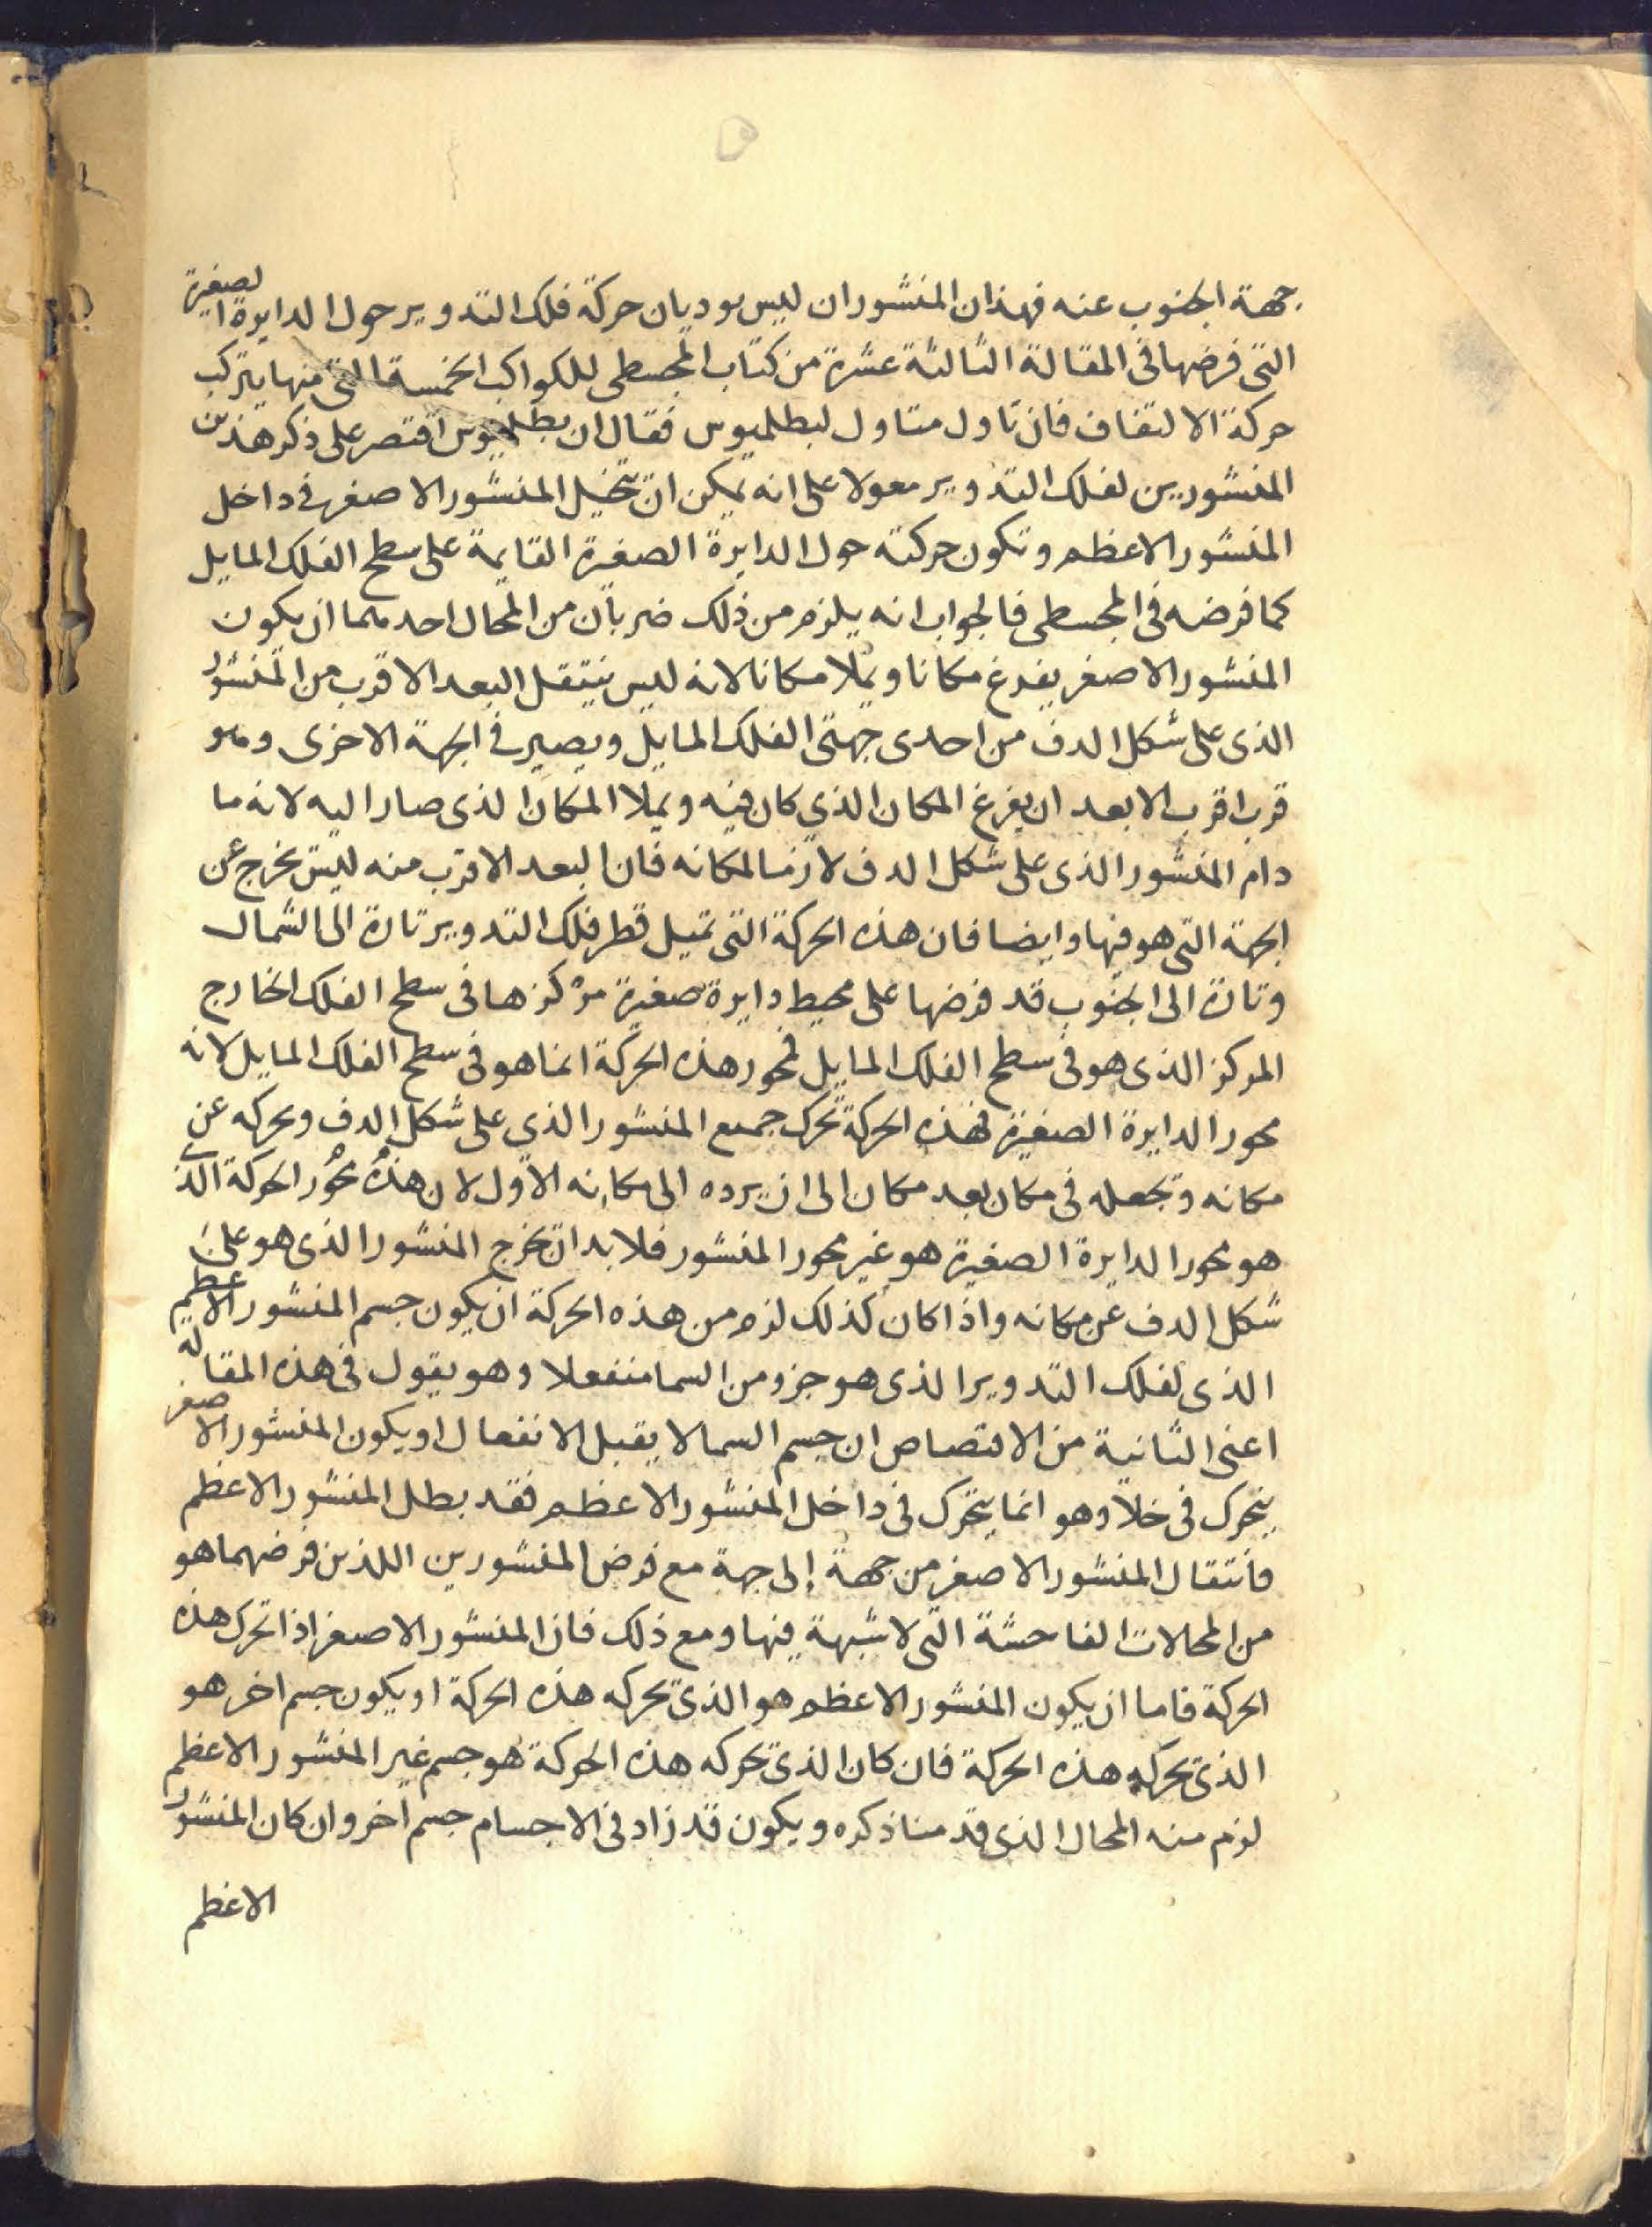 جهة الجنوب عنه فهذان المنشوران ليس يوديان حركة فلك التدوير حول الدايرة الصغيرة
التى فرضها فى المقالة الثالثة عشرة من كتاب المجسطى للكواكب الخمسة التى منها يتركب
حركة الالتفاف فان تاول متاول لبطلميوس فقال ان بطلميوس اقتصر على ذكر هذين
المنشورين لفلك التدوير معولا على انه يمكن ان تتخيل المنشور الاصغر فى داخل
المنشور الاعظم وتكون حركته حول الدايرة الصغيرة القايمة على سطح الفلك المايل
كما فرضه فى المجسطى فالجواب انه يلزم من ذلك ضربان من المحال احدهما ان يكون
المنشور الاصغر يفرغ مكانا ويملا مكانا لانه ليس ينتقل البعد الاقرب من المنشور
الذى على شكل الدف من احدى جهتى الفلك المايل ويصير فى الجهة الاخرى وهو
قرب اقرب الابعد ان يفرغ المكان الذي كان فيه ويملا المكان الذى صار اليه لانه ما
دام المنشور الذى على شكل الدف لازما لمكانه فان البعد الاقرب منه ليس يخرج عن
الجهة التى هو فيها وايضا فان هذه الحركة التى تميل قطر فلك التدوير تارة الى الشمال
وتارة الى الجنوب قد فرضها على محيط دايرة صغيرة مركزها فى سطح الفلك الخارج
المركز الذى هو فى سطح الفلك المايل فمحور هذه الحركة انما هو فى سطح الفلك المايل لانه
محور الدايرة الصغيرة فهذه الحركة تحرك جميع المنشور الذي على شكل الدف وتحركه عن
مكانه وتجعله فى مكان بعد مكان الى ان يرده الى مكانه الاول لان هذه محور الحركة الذى
هو محور الدايرة الصغيرة هو غير محور المنشور فلا بد ان يخرج المنشور الذى هو على
شكل الدف عن مكانه واذا كان كذلك لزم من هذه الحركة ان يكون جسم المنشور الاعظم
الذى لفلك التدوير الذى هو جزو من السما منفعلا وهو يقول فى هذه المقاله
اعنى الثانية من الاقتصاص ان جسم السما لا يقبل الانفعال او يكون المنشور الاصغر
يتحرك فى خلا وهو انما يتحرك فى داخل المنشور الاعظم فقد بطل المنشور الاعظم
فانتقال المنشور الاصغر من جهة إلى جهة مع فرض المنشورين اللذين فرضهما هو
من المحالات الفاحشة التى لا شبهة فيها ومع ذلك فان المنشور الاصغر اذا تحرك هذه
الحركة فاما ان يكون المنشور الاعظم هو الذى تحركه هذه الحركة او يكون جسم اخر هو
الذى تحركه هذه الحركة فان كان الذى تحركه هذه الحركة هو جسم غير المنشور الاعظم
لزم منه المحال الذى قدمنا ذكره ويكون قد زاد فى الاجسام جسم اخر وان كان المنشور
الاعظم